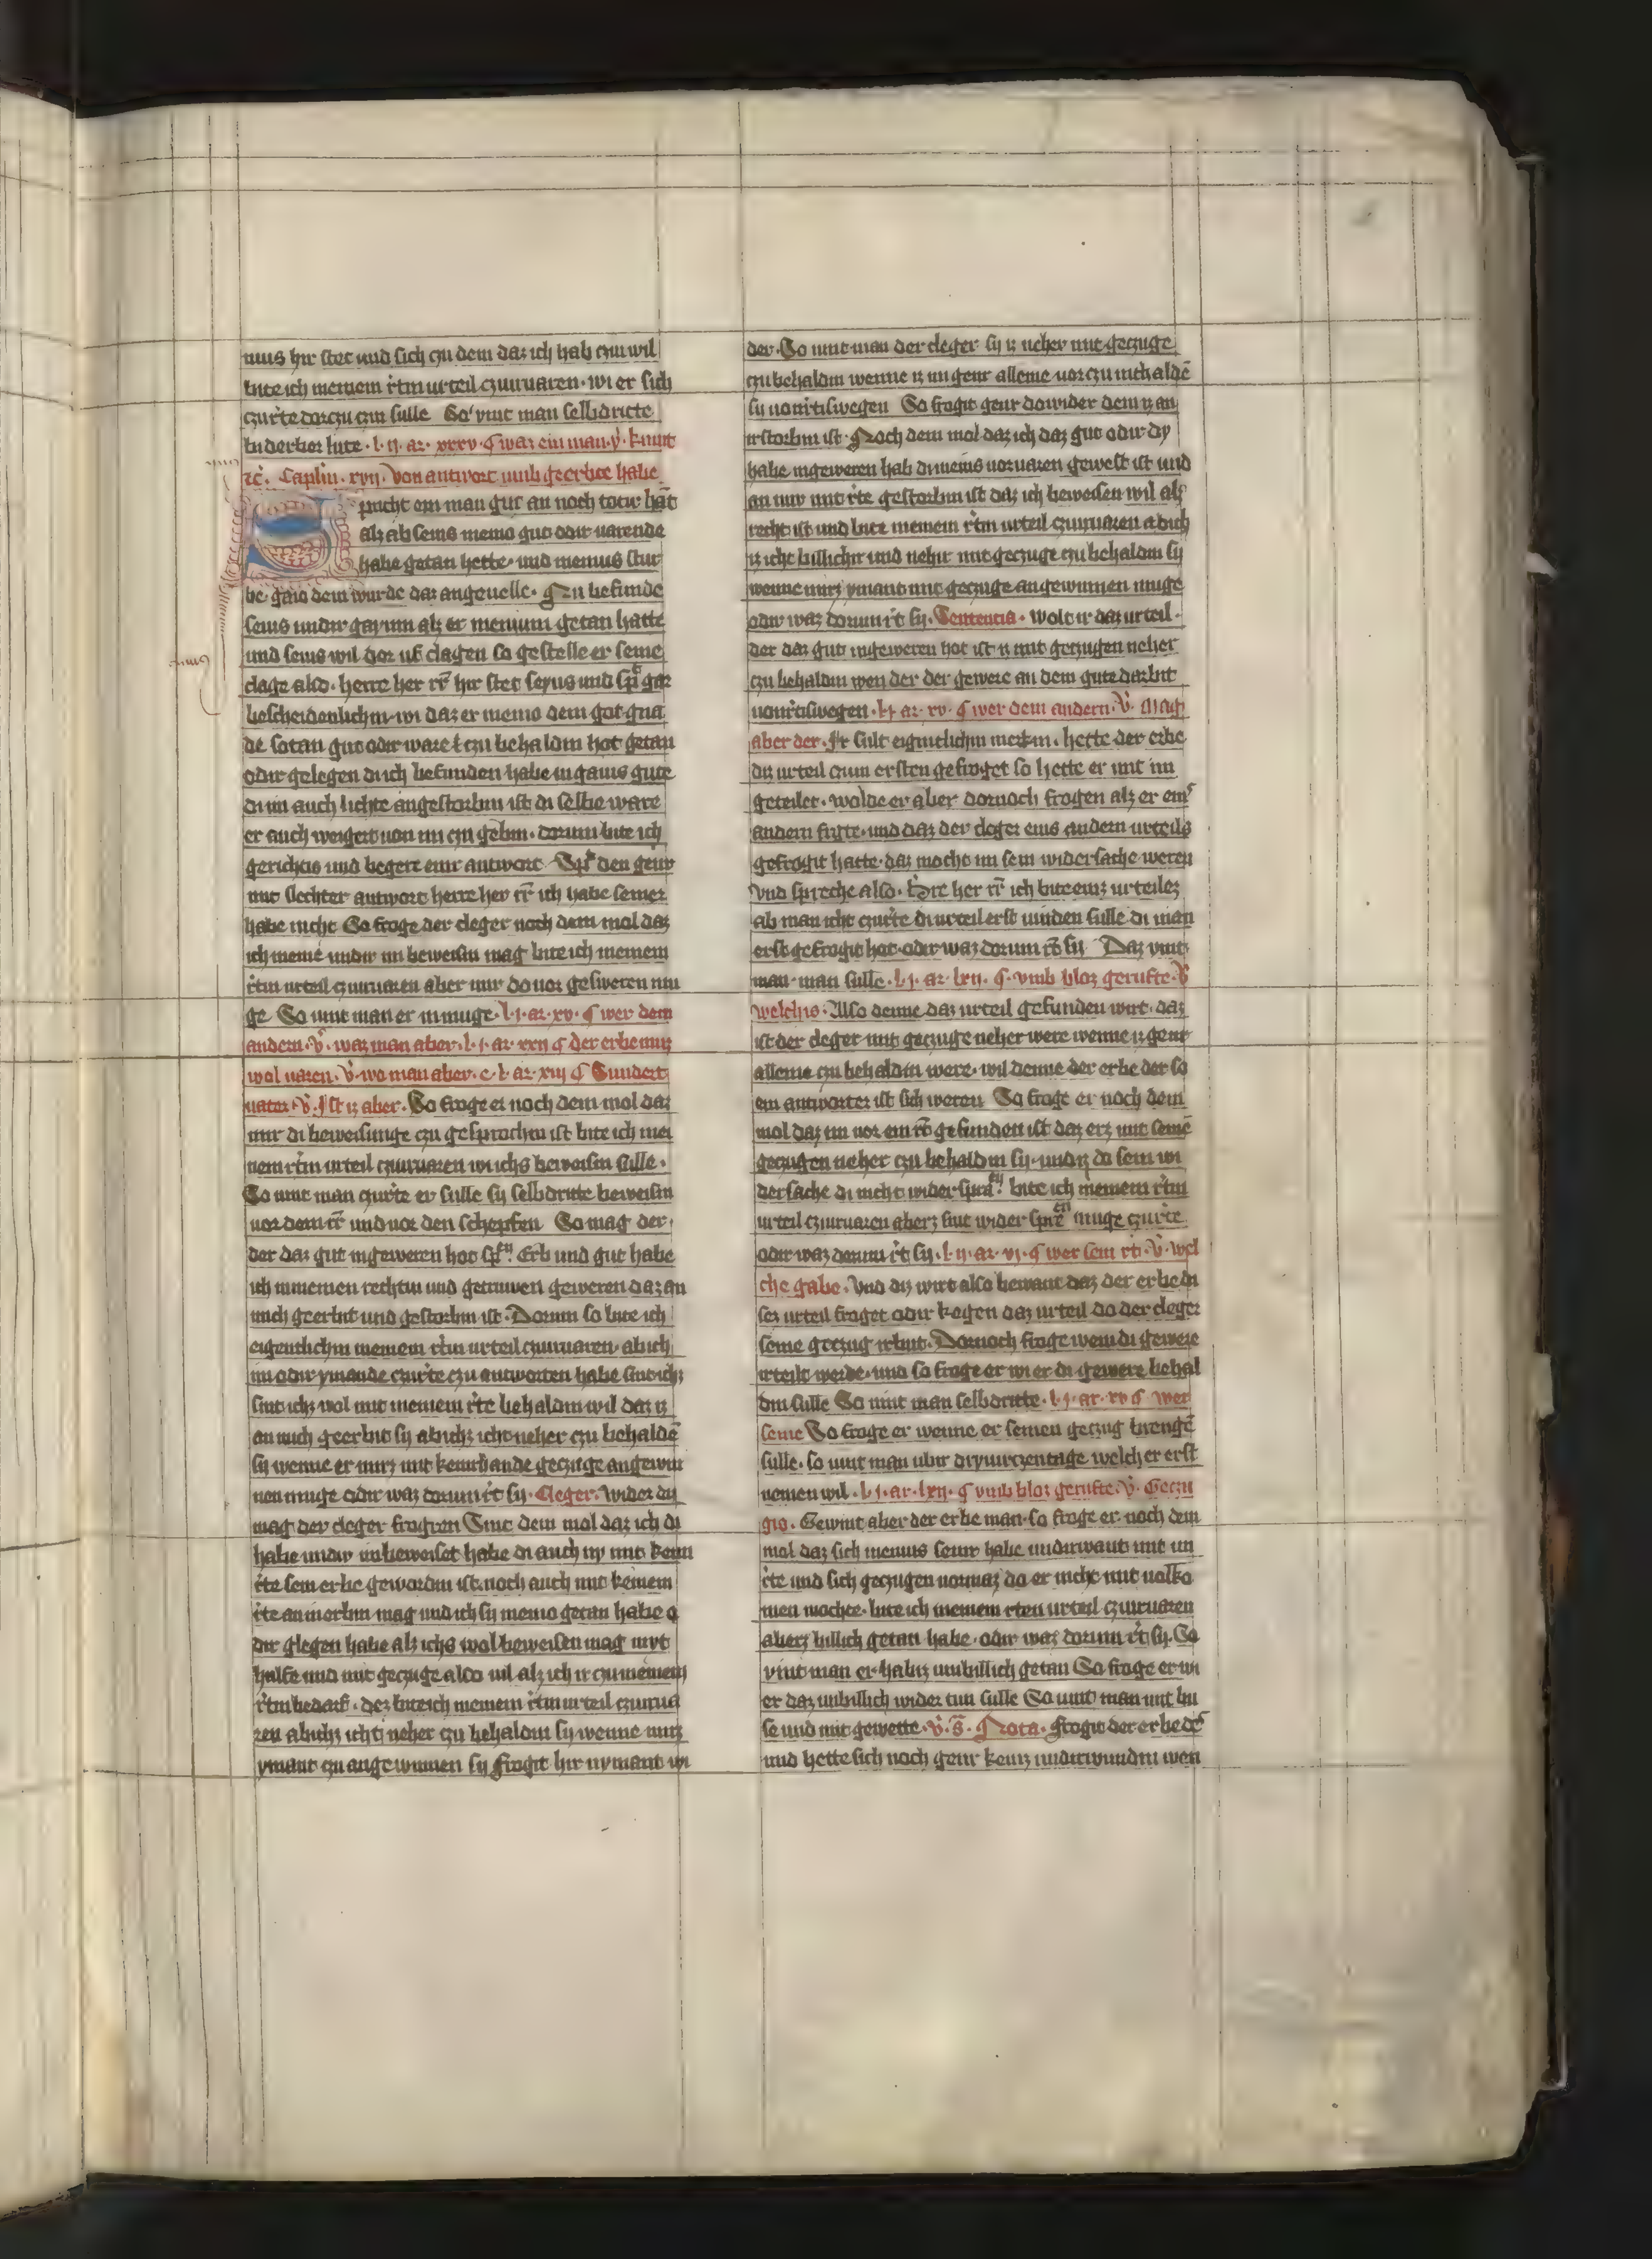 nius hir stet und sich czu dem daz ich hab czun wil
bite ich meinem rechtin urteil czuuruaren wi er sich
czurechte dorczu czin sulle So vint man selbdritte
biderber lute l. ij. ar. xxxv. ¶ waz ein man. v. kumt
etc. Caplm. xvij. Von antwort umb geerbte habe
Spricht ein man gut an noch toter hant
alz ab seius menio gut odir uarende
habe getan hette. und menius stur
be. gaio dem wurde daz angeuelle. Nu befunde
seius undir gayum alz er menium getan hatte
und seius wil dor uf clagen so gestelle er seine
clage also. herre her rr hir stet seyus und spricht gar
bescheidenlichin wi daz er menio dem got gna
de sotan gut odir ware czu behaldin hot getan
odir gelegen di ich befunden habe in gaius gute
di im auch lichte angestorbin ist di selbe ware
er auch weigert uon im czu gebin. dorum bite ich
gerichtis und begere einr antwort Spricht den genir
mit slechter antwort herre her rr ich habe seiner
habe nicht So froge der cleger noch dem mol daz
ich meine undir im beweisin mag bite ich meinem
rtin urteil czuuruaren aber mir do uor gesweren mu
ge So vint man er in muge. l. j. ar. xv. ¶ wer dem
andern. v. waz man aber. l. j. ar. xxij ¶ der erbe muz
wol uaren. v. wo man aber. c. l. ar. xiij ¶ Sundert
uater. v. Jst iz aber. So froge er noch dem mol daz
mir di beweisunge czu gesprochin ist bite ich mei
nem rtin urteil czuuruaren wi ichs beweisin sulle.
So vint man czurte er sulle sy selbdritte beweisin
uor dem rr und uor den schepfen So mag der
der daz gut in geweren hot sprechen Erb und gut habe
ich in meinen rechtin und getruwen geweren daz an
mich geerbit und gestorbin ist. Dorum so bite ich
eigentlichin meinem rtin urteil czuuruaren ab ich
im odir ymande czurte czu antworten habe sint ichz
sint ichz wol mit meinem rte behaldin wil daz iz
an mich geerbit sy ab ichz icht neher czu behalden
sy wenne er mirz mit keinrhande geczuge angewin
nen muge odir waz dorum rt sy. Cleger. Wider diz
mag der cleger frogren Sint dem mol daz ich di
habe undir im beweiset habe di auch ny mit kein
rte sein erbe gewordin ist. noch auch mit keinem
rte an in erbin mag und ich sy menio getan habe o
dir glegen habe alz ichs wol beweisen mag mit
hulfe und mit geczuge also uil alz ich ir czu meinem
rtin bedarf. dez bite ich meinem rtin urteil czuurua
ren ab ichz icht neher czu behaldin sy wenne mirz
ymant czu angewinnen sy Frogit hir nymant wi
der. So vint man der cleger sy iz neher mit geczuge
czu behaldin wenne iz im genir alleine uor czu inthalden
sy uon rtiswegen So frogit genir dowider dem iz an
irstorbin ist. Noch dem mol daz ich daz gut odir dy
habe in geweren hab di meins uoruaren gewest ist und
an mir mit rte gestorbin ist daz ich beweisen wil alz
recht ist und bite meinem rtin urteil czuuruaren ab ich
iz icht billichir und nehir mit geczuge czu behaldin sy
wenne mirz ymant mit geczuge angewinnen muge
odir waz dorum rt sy. Sentencia. Wolt ir daz urteil.
der daz gut in geweren hot ist iz mit geczugen neher
czu behaldin wen der der gewere an dem gute darbit
uon rtiswegen. l. j. ar. xv. ¶ wer dem andern. v. Mag
aber der. Jr sult eigintlichin merkin. hette der erbe
diz urteil czum ersten gefroget so hette er mit im
geteilet. wolde er aber dornoch frogen alz er ein
andern frite. und daz der cleger eins andern urteils
gefrogit hatte. daz mocht im sein widersache weren
Vnd spreche also. Herre her rr ich bite einz urteilez
ab man icht czurte di urteil erst uinden sulle di man
erst gefrogit hot odir waz dorum rt sy Daz vint
man. man sulle. l. j. ar. lxij. ¶. vmb bloz gerufte. v.
welchis. Also denne daz urteil gefunden wirt. daz
ist der cleger mit geczuge neher were wenne iz genir
alleine czu behaldin were. wil denne der erbe der so
ein antworter ist sich weren So froge er noch dem
mol daz im uor ein rt gefunden ist daz erz mit seinen
geczugen neher czu behaldin sy. und iz do sein wi
dersache di nicht widersprach. bite ich meinem rtin
urteil czuuruaren aberz sint wider sprechen muge czurte
odir waz dorum rt sy. l. ij. ar. vj. ¶ wer sein rt. v. wel
che gabe. Vnd diz wirt also bewant daz der erbe di
sez urteil froget odir kegen daz urteil do der cleger
seine geczug irbiut. Dornoch froge wem di gewere
irteilt werde. und so froge er wi er di gewere behal
din sulle So vint man selbdritte. l. j. ar. xv ¶ wer
seine So froge er wenne er seinen geczug brengen
sulle. so vint man ubir dry uirczentage welch er erst
nemen wil. l. j. ar. lxij. ¶ vmb bloz gerufte. v. Geczu
gis. Gewint aber der erbe man. so froge er noch dem
mol daz sich menius seinr habe undirwant mit un
rte und sich geczugen uormaz do er nicht mit uolko
men mochte. bite ich meinem rten urteil czuuruaren
aberz billich getan habe. odir waz dorum rt sy. So
vint man er habiz unbillich getan So froge er wi
er daz unbillich wider tun sulle So vint man mit bu
se und mit gewette. v. s. Nota. Frogit der erbe der
und hette sich noch genir keinz undirwundin wen